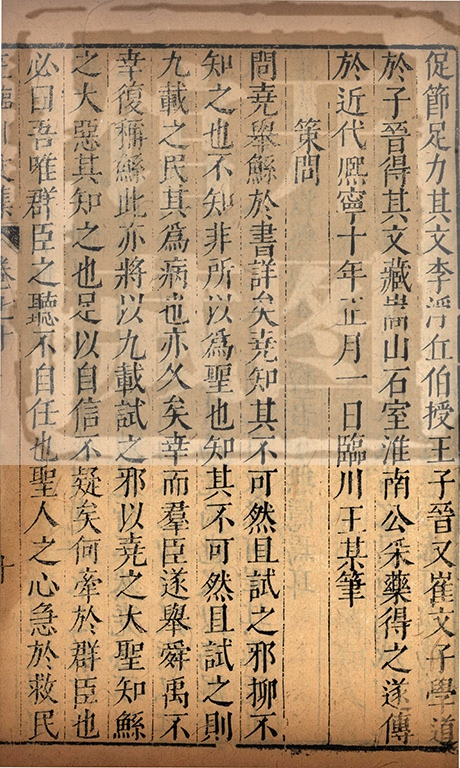 促節足力其文李浮丘伯授王子晉又崔文子學道
於子晉得其文藏嵩山石室淮南公采藥得之遂傳
於近代熈寧十年正月一日臨川王某筆
策問
問堯舉鯀於書詳矣堯知其不可然且試之邪抑不
知之也不知非所以爲聖也知其不可然且試之則
九載之民其爲病也亦久矣幸而羣臣遂舉舜禹不
幸復稱鯀此亦將以九載試之邪以堯之大聖知鯀
之大惡其知之也足以自信不疑矣何牽於群臣也
必曰吾唯群臣之聽不自任也聖人之心急於救民
王臨川文集 卷七十